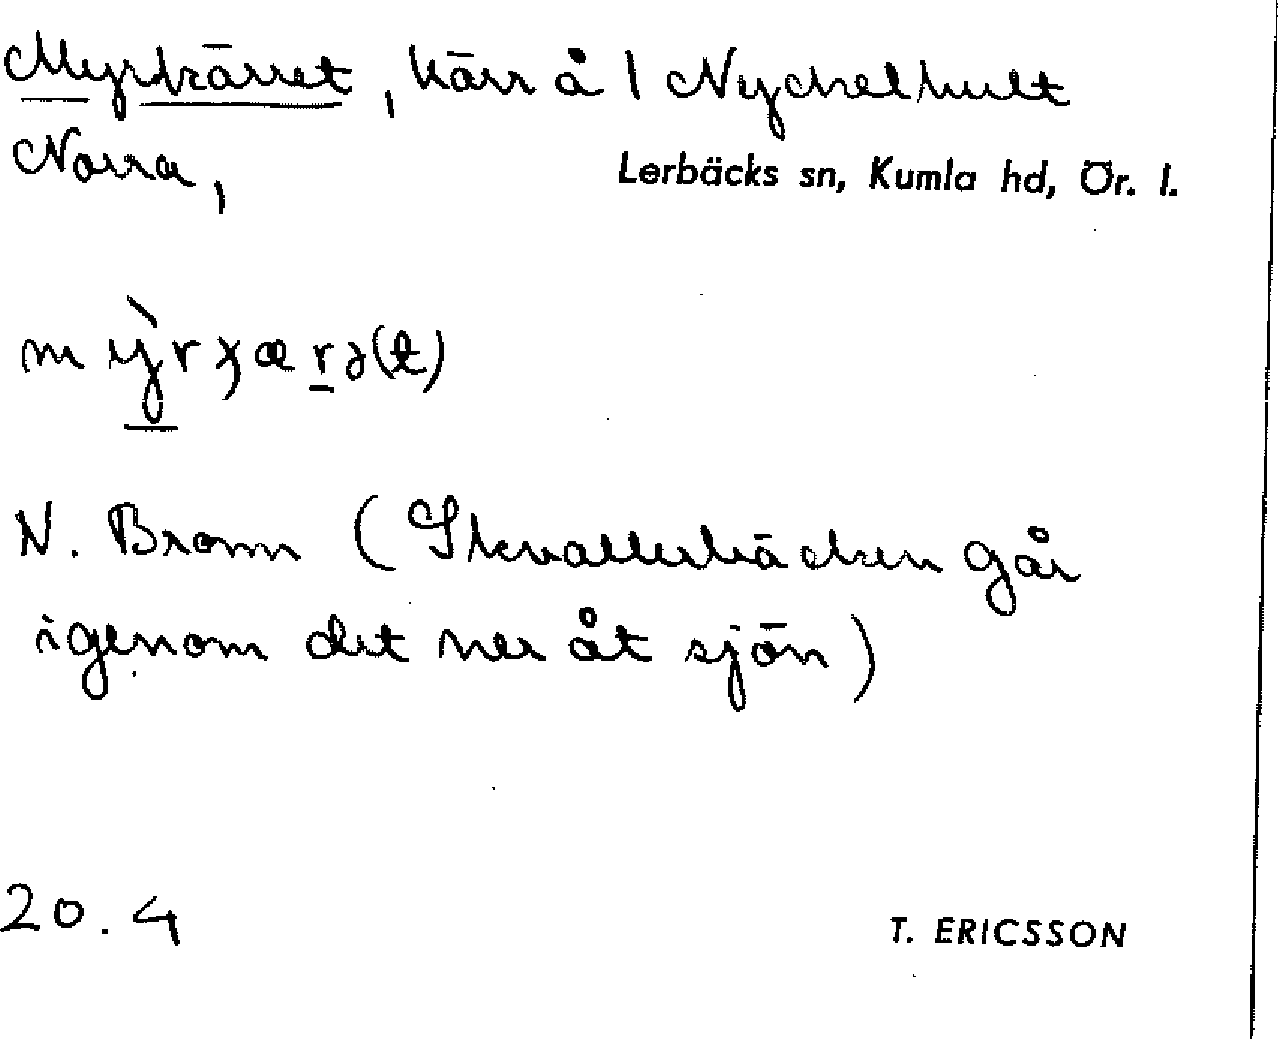 Myrkärret, kärr å 1 Nyckelhult
Norra,
Lerbäcks sn, Kumla hd, Ör. l.
mỳrɣærə(t)
N. Bromn (Skvallerbäcken går
igenom det ner åt sjön)
20.4
T. ERICSSON